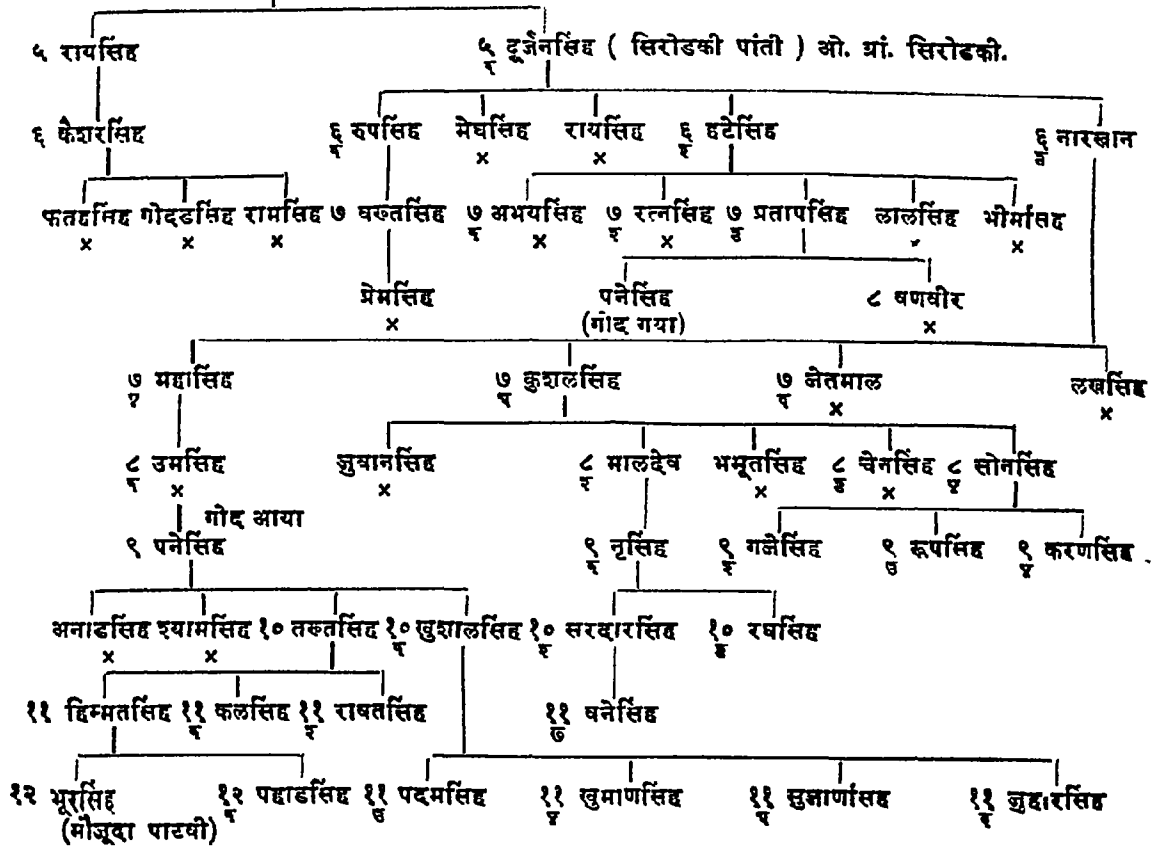 ५ रायसिंह ५/१ दूर्जनसिंह ( सिरोडकी पांती ) ओ. ग्रां. सिरोडकी.
६ केशरसिंह ६/१ रुपसिंह मेघसिंह × रायसिंह × ६/२ हटेसिंह ६/३ नारखान
फतहसिंह × गोदडसिंह × रामसिंह × ७ वख्तसिंह ७/१ अभयसिंह × ७/२ रत्नसिंह × ७/३ प्रतापसिंह लालसिंह × भीमसिंह ×
प्रेमसिंह × पनेसिंह ८ वणवीर ×
(गोद गया)
७/४ महासिंह ७/५ कुशलसिंह ७/६ जेतमाल × लखसिंह ×
८/१ उमसिंह × जुवानसिंह × ८/२ मालदेव भभूतसिंह × ८/३ चेनसिंह × ८/४ सोनसिंह
गोद आया
९ पनेसिंह ९/१ नृसिंह ९/२ गजेसिंह ९/३ रूपसिंह ९/४ करणसिंह
अनाडसिंह × श्यामसिंह × १० तख्तसिंह १०/१ खुशालसिंह १०/२ सरदारसिंह १०/३ रघसिंह
११ हिम्मतसिंह ११/१ कलसिंह ११/२ रावतसिंह ११/७ वनेसिंह
१२ भूरसिंह १२/१ पहाडसिंह ११/३ पदमसिंह ११/४ खुमाणसिंह ११/५ सुजाणसिंह ११/६ जुहारसिंह
(मौजूदा पाटवी)